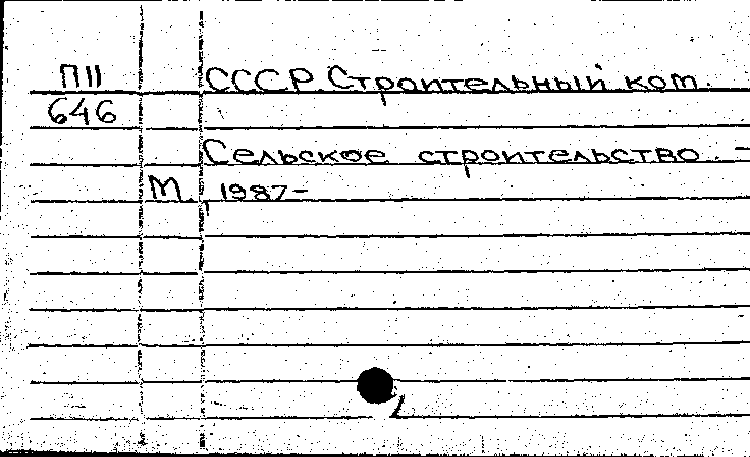 П11 СССР. Строительный ком.
646
Сельское строительство. -
М., 1987-